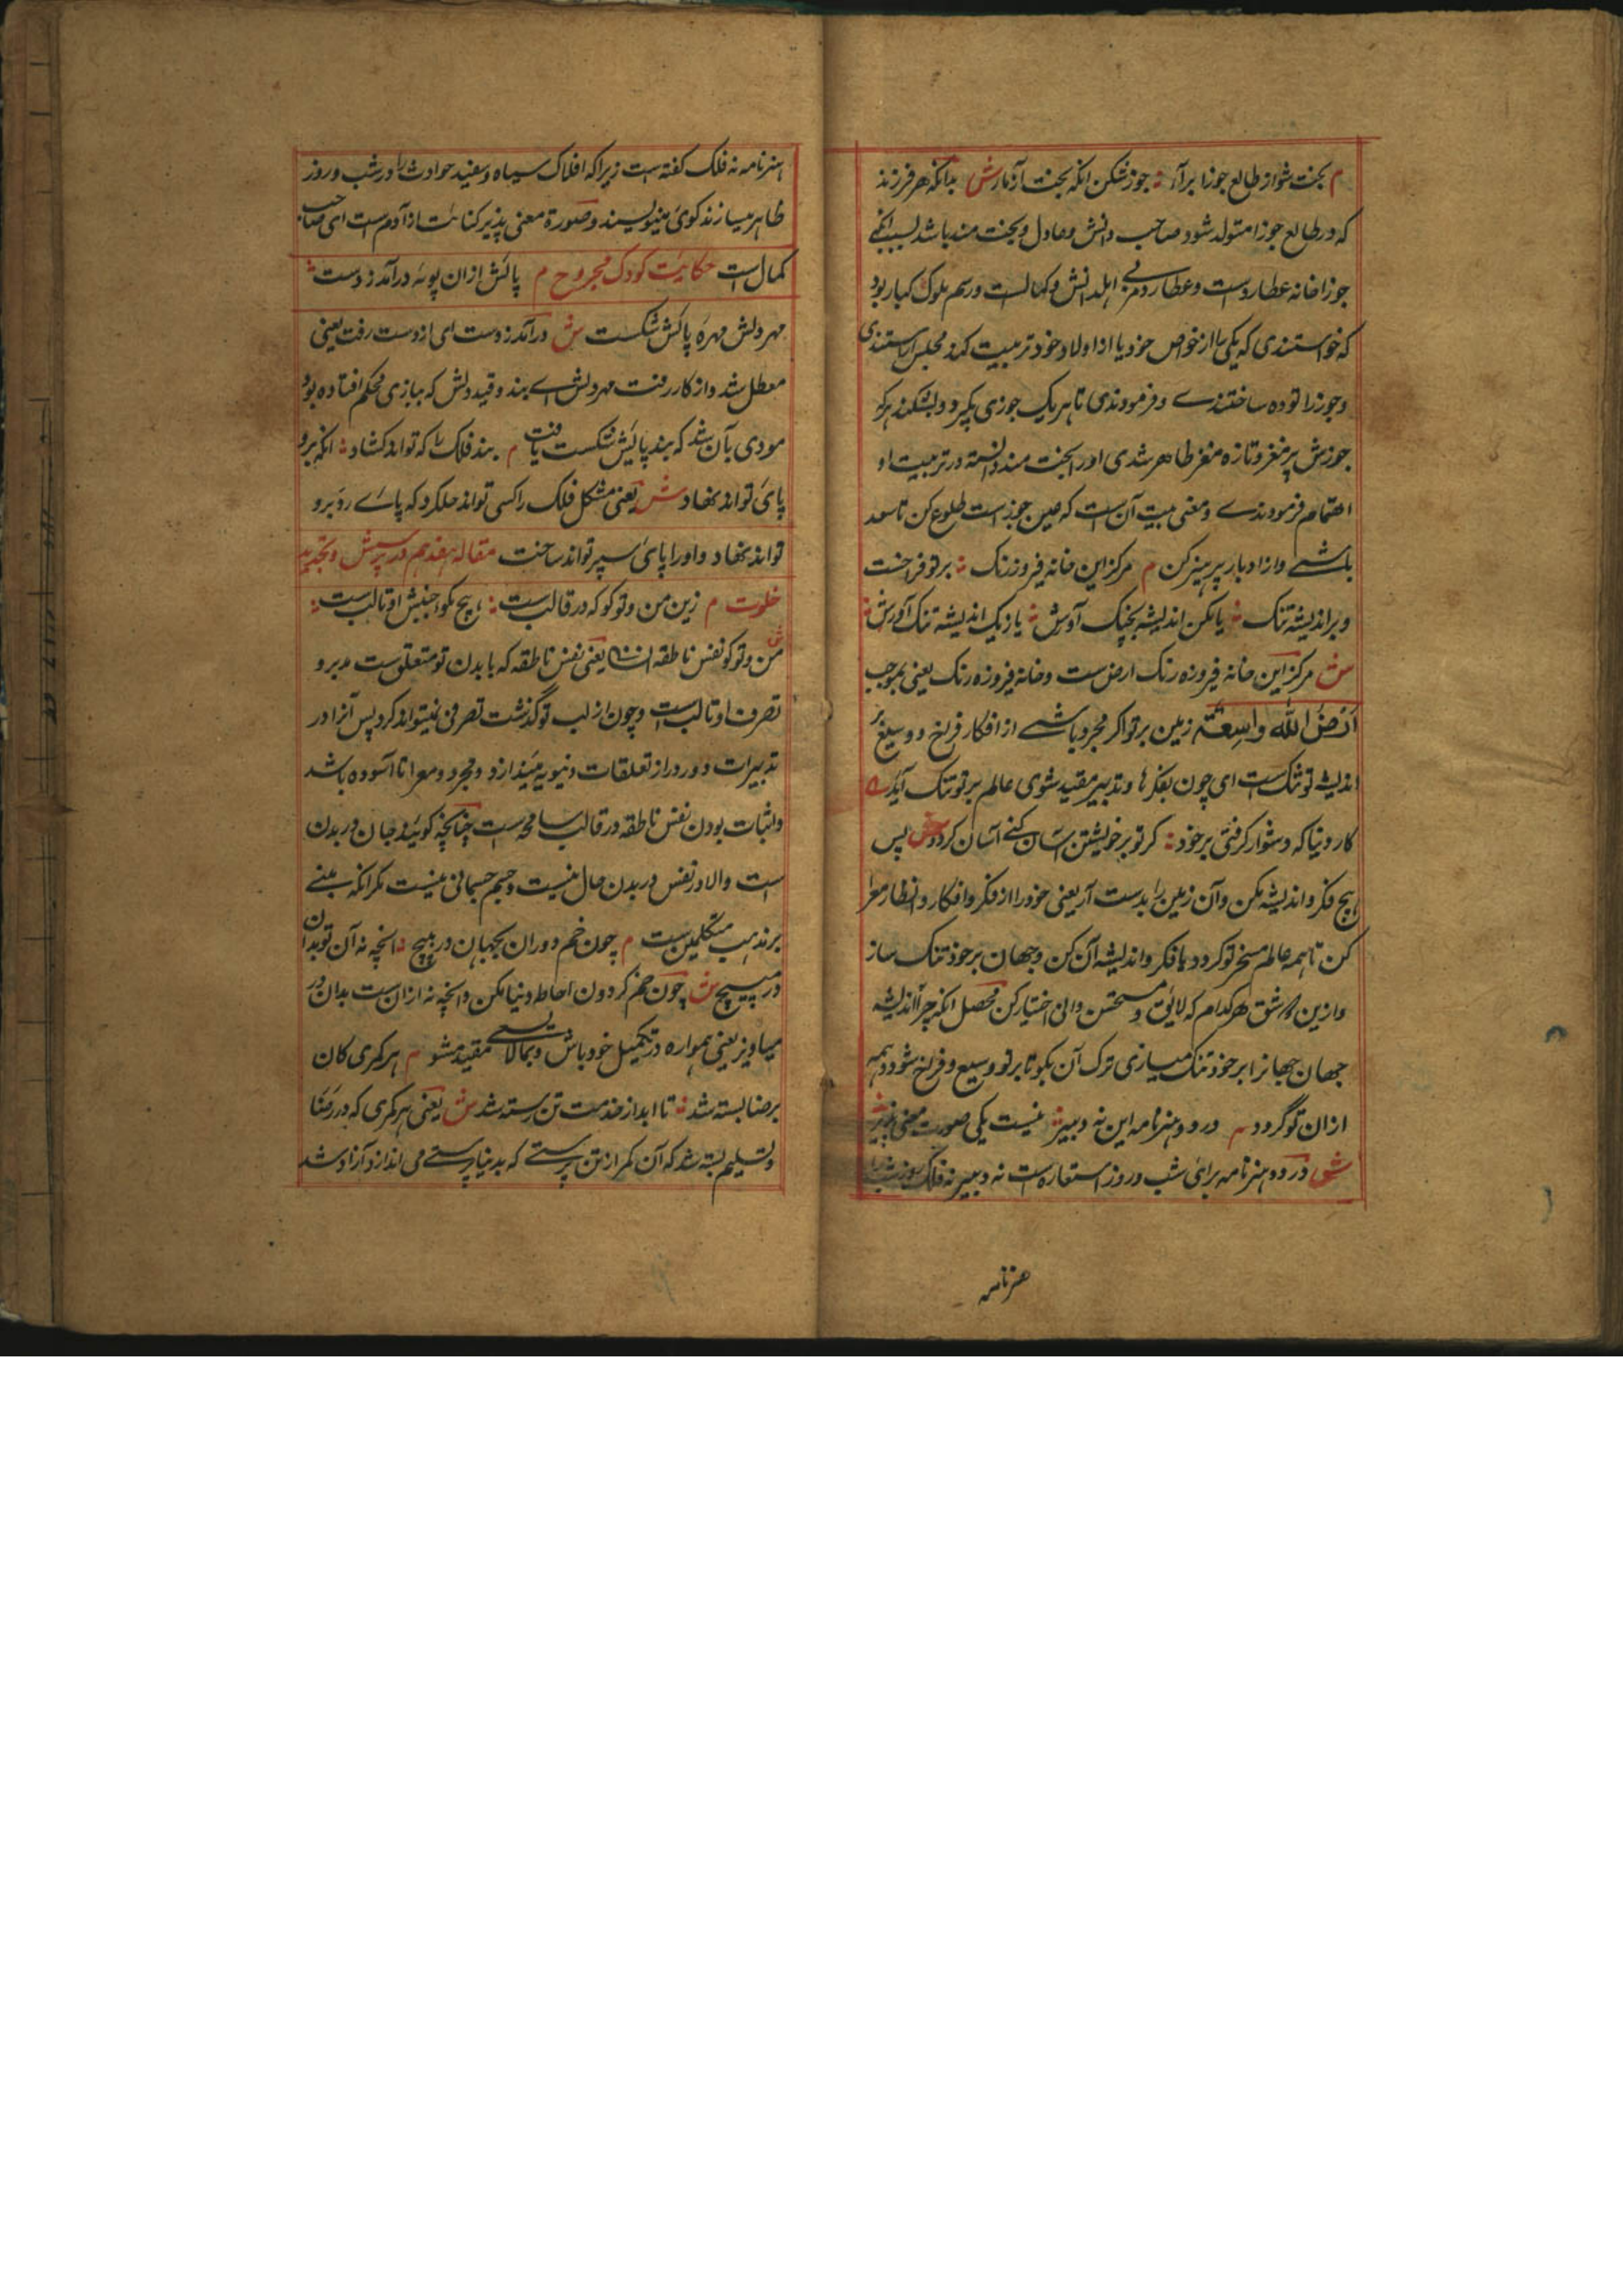 م بخت شو از طالع جوزا برآر ؞ جوز شکن آنکه بخت آزمار ش بدانکه هر فرزند
که در طالع جوزا متولد شود صاحب دانش و عادل و بخت مند باشد بسبب آنکه
جوزا خانه عطارد است و عطارد مربی اهل دانش و کمالست و رسم ملوک کبار بود
که خواستندی که یکی را از خواص خود یا از اولاد خود تربیت کنند مجلس آراستندی
و جوز را توده ساختندے و فرمودندی تا هر یک جوزی بگیرد و بشکند هر که
جوزش پر مغز و تازه مغز ظاهر شدی او را بخت مند دانسته در تربیت او
اهتمام فرمودندے و معنی بیت آن است که عین جوز است طلوع کن تا سعد
باشے و از ادبار پرهیز کن م مرکز این خانه فیروز رنگ ؞ بر تو فراخست
و بر اندیشه تنگ ؞ یا مکن اندیشه بچنگ آورش ؞ یا ز یک اندیشه تنگ آورش ؞
ش مرکز این خانه فیروزه رنگ ارض ست و خانه فیروزه رنگ یعنی بموجب
اَرْضُ اللّٰه واسِعَة زمین بر تو اگر مجرد باشے از افکار فراخ و وسیع بر
اندیشه تو تنگ است ای چون بفکرها و تدبیر مقید شوی عالم بر تو تنگ آید
کار دنیا که دشوار گرفتی بر خود ؞ گر تو بر خویشتن آسان کنے آسان گردد ش پس
هیچ فکر و اندیشه مکن و آن زمین را بدست آر یعنی خود را از فکر و افکار و انظار معرا
کن تا همه عالم مسخر تو گردد یا فکر و اندیشه آن کن و جهان بر خود تنگ ساز
و ازین دو شق هر کدام که لایق و مستحسن دانی اختیار کن محصل آنکه چرا اندیشه
جهان جهان را بر خود تنگ میسازی ترک آن بگو تا بر تو وسیع و فراخ شود و همه
ازان تو گردد م در دو هنر نامه این نه دبیر ؞ نیست یکی صورت معنی پذیر
ش در دو هنر نامه برای شب و روز استعاره است نه دبیر نه فلک روز شب را
هنر نامه
هنر نامه نه فلک گفته است زیرا که افلاک سیاه و سفید حوادث را در شب و روز
ظاهر میسازند گوئ مینویسند و صورة معنی پذیر کنایت از آدم ست ای صاحب
کمال است حکایت کودک مجروح م پائش ازان پویه درآمد ز دست ؞
مهر دلش مهرهٔ پائش شکست ش درآمد ز دست ای از دست رفت یعنی
معطل شد و از کار رفت مهر دلش اے بند و قید دلش که ببازی محکم افتاده بود
مودی بآن شد که بند پائیش شکست یافت م بند فلک را که تواند کشاد ؞ آنکه برو
پائ تواند نهاد ش یعنی مشکل فلک را کسی تواند حل کرد که پائے رو برو
تواند نهاد و او را پائ سپر تواند ساخت مقاله هفدهم در پرستش و تجرید
خلوت م زین من و تو گو که در قالب ست ؞ هیچ مگو جنبش او تا لب ست ؞
ش من و تو گو نفس ناطقه انسانی یعنی نفس ناطقه که با بدن تو متعلق ست مدبر و
تصرف او تا لب است و چون از لب تو گذشت تصرفی نمیتواند کرد پس آنرا در
تدبیرات دور دراز تعلقات دنیویه میندازد و مجرد و معرا تا آسوده باشد
و اثبات بودن نفس ناطقه در قالب مسامحه ست چنانچه گویند جان در بدن
است والا در نفس در بدن حال نیست و جسم جسمانی نیست مگر آنکه مبنے
بر مذهب متکلمین ست م چون خم دوران بجهان در مپیچ ؞ آنچه نه آن تو بدان
در مپیچ ش چون خم گردون احاطه دنیا مکن و آنچه نه ازان ست بدان در
میاویز یعنی همواره در تکمیل خود باش و بمالا یعنی مقید مشو م هر کمری کان
برضا بسته شد ؞ تا ابد از خدمت تن رسته شد ش یعنی هر کمری که در رضا
و تسلیم بسته شد که آن کمر از تن پرستے که بدنیا پرستے می اندازد آزاد شد